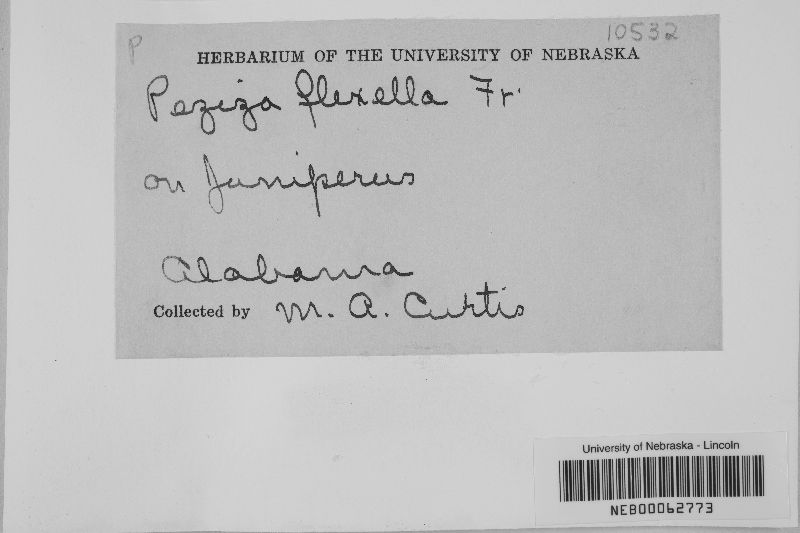 P 10532
HERBARIUM OF THE UNIVERSITY OF NEBRASKA
Peziza flexella Fr.
on Juniperus
Alabama
Collected by M. A. Curtis
University of Nebraska - Lincoln
NEB00062773